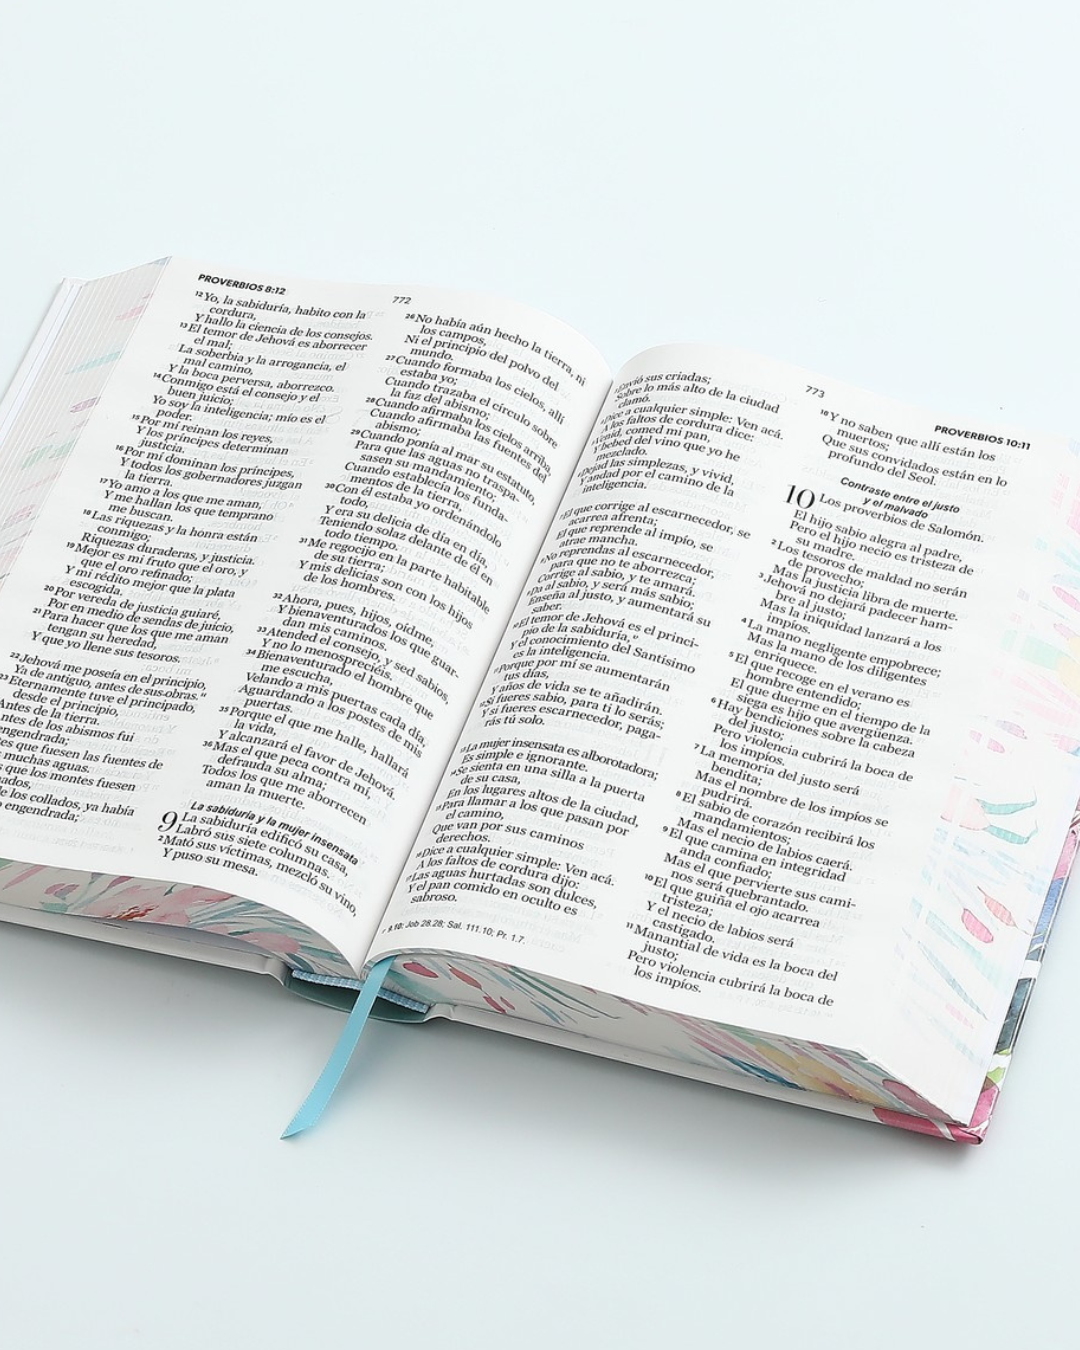 PROVERBIOS 8:12
772
12 Yo, la sabiduría, habito con la
cordura,
Y hallo la ciencia de los consejos.
13 El temor de Jehová es aborrecer
el mal;
La soberbia y la arrogancia, el
mal camino,
Y la boca perversa, aborrezco.
14 Conmigo está el consejo y el
buen juicio;
Yo soy la inteligencia; mío es el
poder.
15 Por mí reinan los reyes,
Y los príncipes determinan
justicia.
16 Por mí dominan los príncipes,
Y todos los gobernadores juzgan
la tierra.
17 Yo amo a los que me aman,
Y me hallan los que temprano
me buscan.
18 Las riquezas y la honra están
conmigo;
Riquezas duraderas, y justicia.
19 Mejor es mi fruto que el oro, y
que el oro refinado;
Y mi rédito mejor que la plata
escogida.
20 Por vereda de justicia guiaré,
Por en medio de sendas de juicio,
21 Para hacer que los que me aman
tengan su heredad,
Y que yo llene sus tesoros.
22 Jehová me poseía en el principio,
Ya de antiguo, antes de sus obras.
23 Eternamente tuve el principado,
desde el principio,
Antes de la tierra.
ntes de los abismos fui
engendrada;
es que fuesen las fuentes de
muchas aguas.
que los montes fuesen
ados,
de los collados, ya había
engendrada;
26 No había aún hecho la tierra, ni
los campos,
Ni el principio del polvo del
mundo.
27 Cuando formaba los cielos, allí
estaba yo;
Cuando trazaba el círculo sobre
la faz del abismo;
28 Cuando afirmaba los cielos arriba,
Cuando afirmaba las fuentes del
abismo;
29 Cuando ponía al mar su estatuto,
Para que las aguas no traspa-
sasen su mandamiento;
Cuando establecía los funda-
mentos de la tierra,
30 Con él estaba yo ordenándolo
todo,
Y era su delicia de día en día,
Teniendo solaz delante de él en
todo tiempo.
31 Me regocijo en la parte habitable
de su tierra;
Y mis delicias son con los hijos
de los hombres.
32 Ahora, pues, hijos, oídme,
Y bienaventurados los que guar-
dan mis caminos.
33 Atended el consejo, y sed sabios,
Y no lo menospreciéis.
34 Bienaventurado el hombre que
me escucha,
Velando a mis puertas cada día,
Aguardando a los postes de mis
puertas.
35 Porque el que me halle, hallará
la vida,
Y alcanzará el favor de Jehová.
36 Mas el que peca contra mí,
defrauda su alma;
Todos los que me aborrecen
aman la muerte.
La sabiduría y la mujer insensata
9 La sabiduría edificó su casa,
Labró sus siete columnas.
2 Mató sus víctimas, mezcló su vino,
Y puso su mesa.
773
PROVERBIOS 10:11
Envió sus criadas;
Sobre lo más alto de la ciudad
clamó.
Dice a cualquier simple: Ven acá.
A los faltos de cordura dice:
Venid, comed mi pan,
Y bebed del vino que yo he
mezclado.
Dejad las simplezas, y vivid,
Y andad por el camino de la
inteligencia.
El que corrige al escarnecedor, se
acarrea afrenta;
El que reprende al impío, se
atrae mancha.
No reprendas al escarnecedor,
para que no te aborrezca;
Corrige al sabio, y te amará.
Da al sabio, y será más sabio;
Enseña al justo, y aumentará su
saber.
El temor de Jehová es el princi-
pio de la sabiduría,
Y el conocimiento del Santísimo
es la inteligencia.
Porque por mí se aumentarán
tus días,
Y años de vida se te añadirán.
Si fueres sabio, para ti lo serás;
Y si fueres escarnecedor, paga-
rás tú solo.
La mujer insensata es alborotadora;
Es simple e ignorante.
Se sienta en una silla a la puerta
de su casa,
En los lugares altos de la ciudad,
Para llamar a los que pasan por
el camino,
Que van por sus caminos
derechos.
Dice a cualquier simple: Ven acá.
A los faltos de cordura dijo:
Las aguas hurtadas son dulces,
Y el pan comido en oculto es
sabroso.
9.10: Job 28.28; Sal. 111.10; Pr. 1.7.
18 Y no saben que allí están los
muertos;
Que sus convidados están en lo
profundo del Seol.
Contraste entre el justo
y el malvado
10 Los proverbios de Salomón.
El hijo sabio alegra al padre,
Pero el hijo necio es tristeza de
su madre.
2 Los tesoros de maldad no serán
de provecho;
Mas la justicia libra de muerte.
3 Jehová no dejará padecer ham-
bre al justo;
Mas la iniquidad lanzará a los
impíos.
4 La mano negligente empobrece;
Mas la mano de los diligentes
enriquece.
5 El que recoge en el verano es
hombre entendido;
El que duerme en el tiempo de la
siega es hijo que avergüenza.
6 Hay bendiciones sobre la cabeza
del justo;
Pero violencia cubrirá la boca de
los impíos.
7 La memoria del justo será
bendita;
Mas el nombre de los impíos se
pudrirá.
8 El sabio de corazón recibirá los
mandamientos;
Mas el necio de labios caerá.
9 El que camina en integridad
anda confiado;
Mas el que pervierte sus cami-
nos será quebrantado.
10 El que guiña el ojo acarrea
tristeza;
Y el necio de labios será
castigado.
11 Manantial de vida es la boca del
justo;
Pero violencia cubrirá la boca de
los impíos.